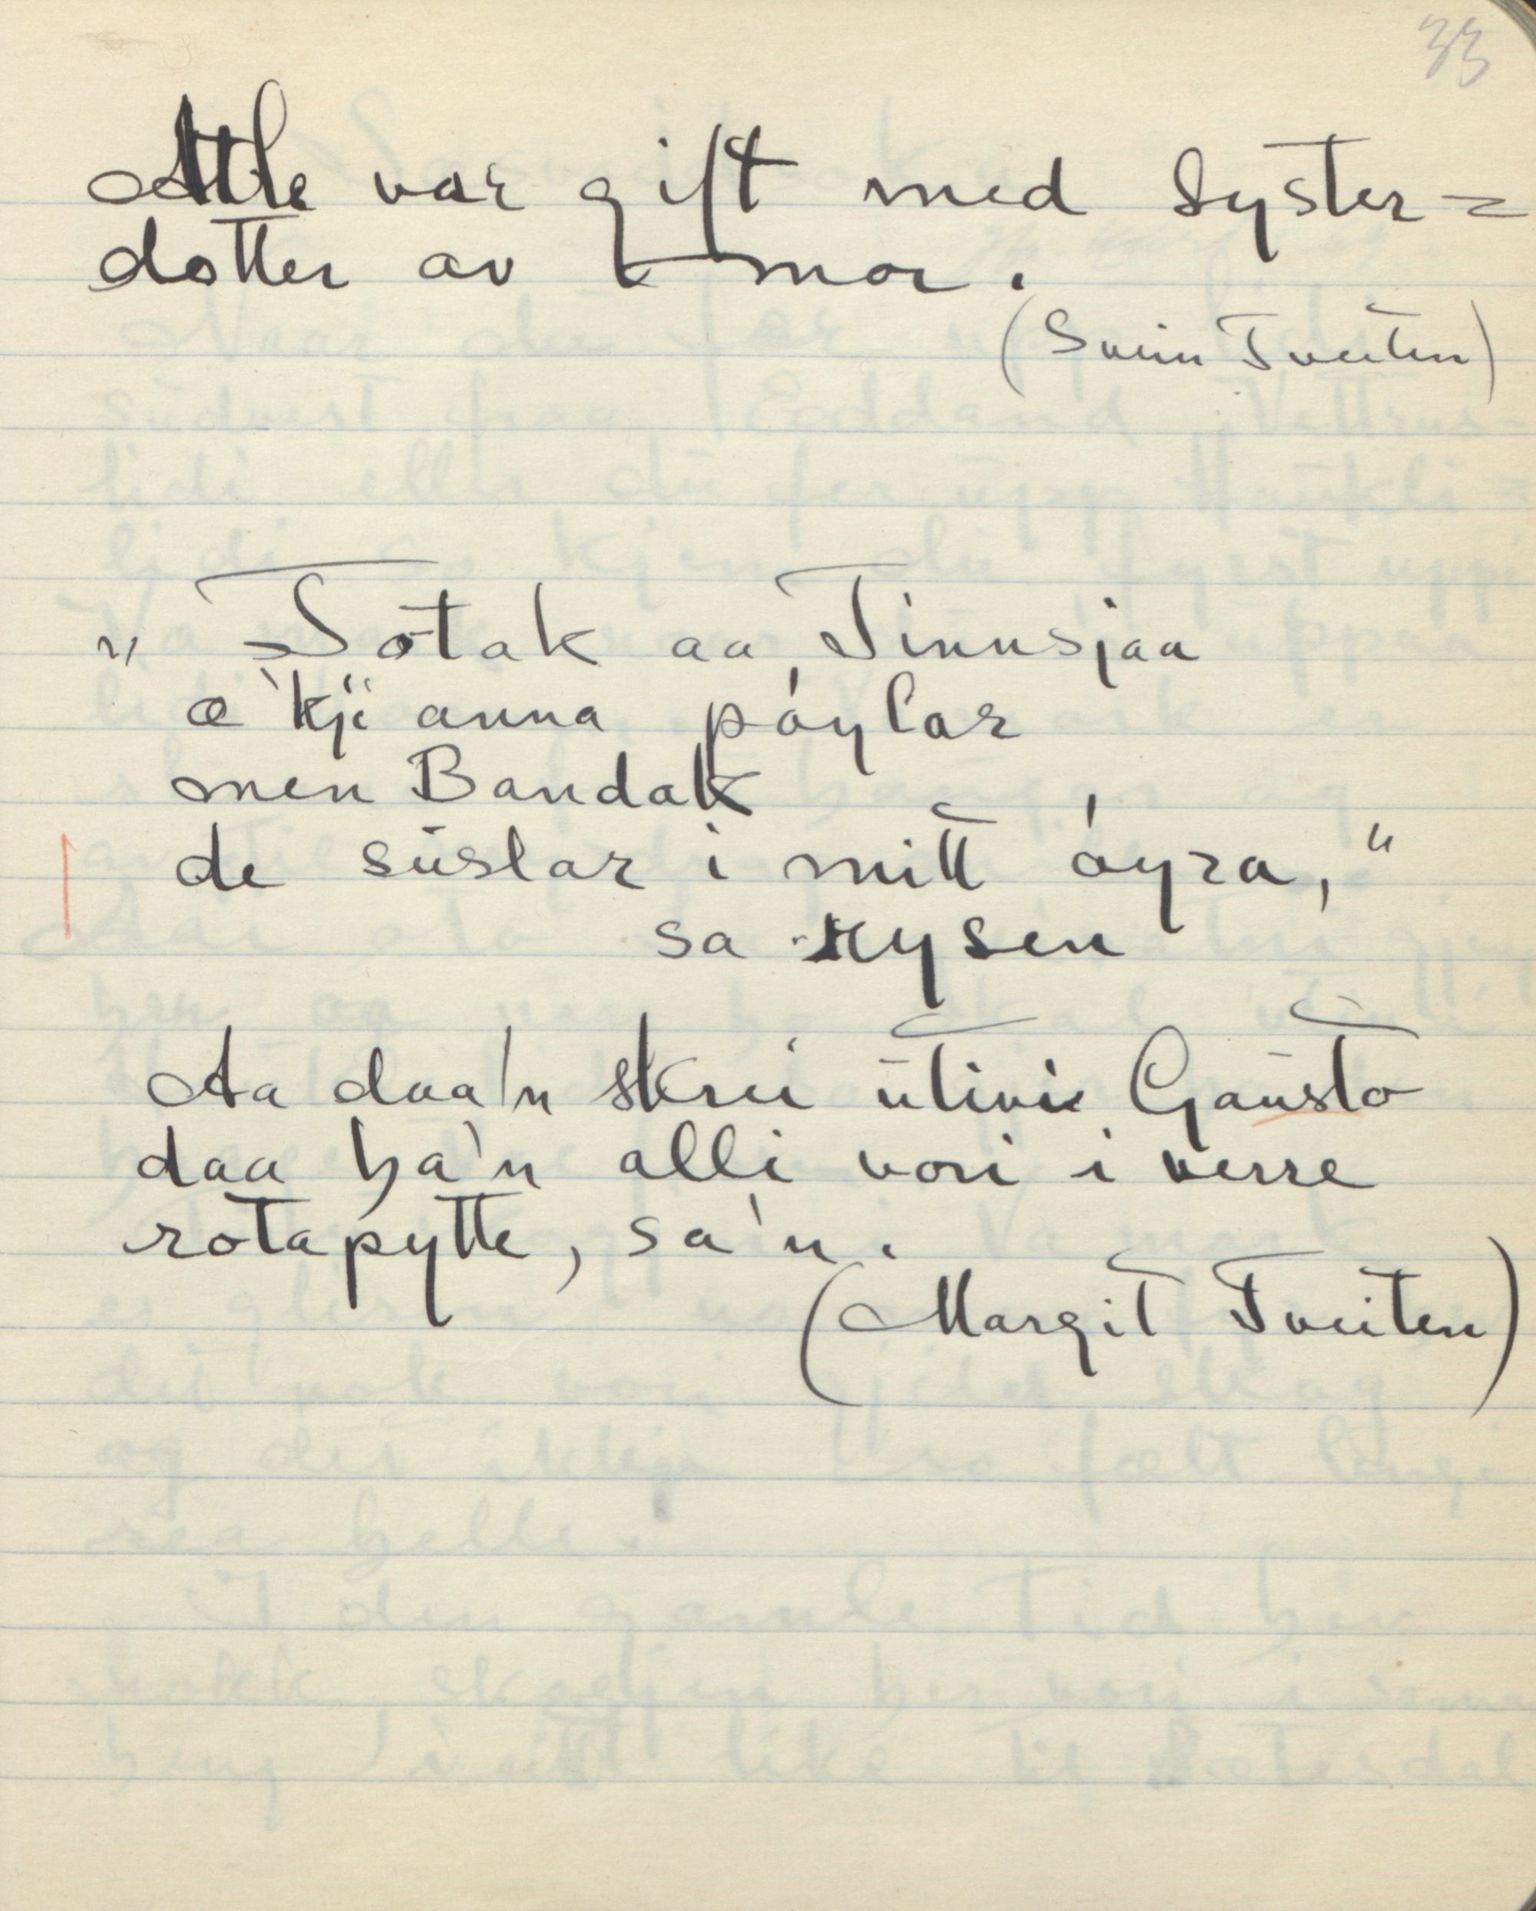 33
Atle var gift med Syster=
dotter av mor.
(Svein Tveiten)
„Totak aa Tinnsjaa
æ 'kji anna pøylar
men Bandak
de suslar i mitt øyra,"
sa rysen
Aa daa'n skrei utivi Gausto
daa ha'n alli vori i verre
rotapytte, sa'n.
(Margit Tveiten)